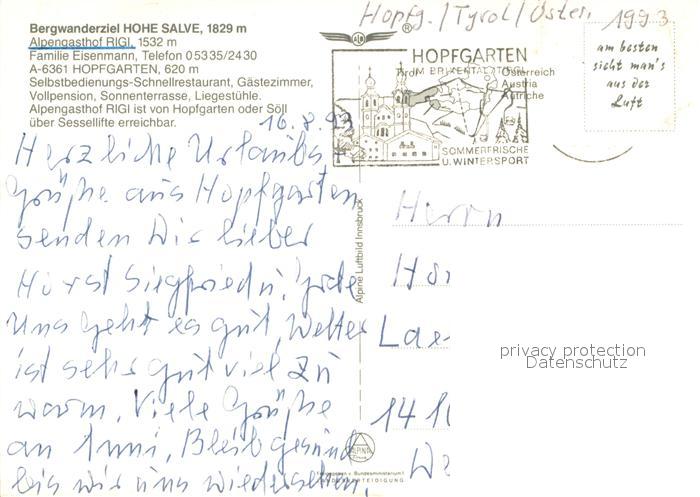 Hopfg./Tyrol/Österr. 1993
Bergwanderziel HOHE SALVE, 1829 m
Alpengasthof RIGI, 1532 m
Familie Eisenmann, Telefon 05335/2430
A-6361 HOPFGARTEN, 620 m
Selbstbedienungs-Schnellrestaurant, Gästezimmer,
Vollpension, Sonnenterrasse, Liegestühle.
Alpengasthof RIGI ist von Hopfgarten oder Söll
über Sessellifte erreichbar.
ALPINE
®
HOPFGARTEN
TIROL IM BRIXENTAL
Österreich
Austria
Autriche
SOMMERFRISCHE
U. WINTERSPORT
am besten
sieht man's
aus der
Luft
16.8.93
Herzliche Urlaubs
Grüße aus Hopfgarten
senden Dir lieber
Horst Siegfried u.
Uns geht es gut, Wetter
ist sehr gut viel zu
warm. Viele Grüße
an Anni, Bleib gesund
bis wir uns wiedersehen.
Alpine Luftbild Innsbruck
Freigegeben v. Bundesministerium f.
LANDESVERTEIDIGUNG
Herrn
Hor
La
14 1
privacy protection
Datenschutz